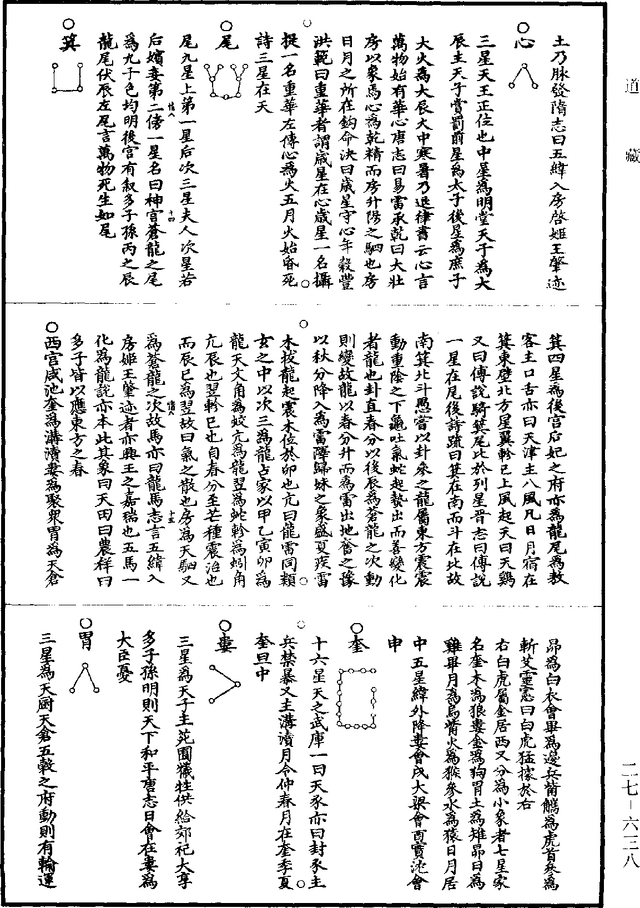 道藏
土乃脉發隋志曰五緯入房啓姬王肇迹
心
三星天王正位也中星為明堂天子為大
辰主天子賞罰前星為太子後星為庶子
大火為大辰大中寒暑乃退律書云心言
萬物始有華心唐志曰易雷乘乾曰大壯
房以象焉心為乾精而房升陽之駟也房
日月之所在鈎命決曰歲星守心年穀豐
洪範曰重華者謂歲星在心歲星一名攝
提一名重華左傳心為火五月火始昏死
詩三星在天
尾
尾九星上第一星后次三星夫人次星若
后嬪妾第二傍一星名曰神宮蒼龍之尾
為九子色均明後宮有叙多子孫丙之辰
龍尾伏辰左尾言萬物死生如尾
箕
箕四星為後宮后妃之府亦為龍尾為敖
客主口舌亦曰天津主八風凡日月宿在
箕東壁北方星翼軫已上風起天曰天鷄
又曰傳說騎箕尾比於列星晋志曰傳說
一星在尾後詩疏曰箕在南而斗在北故
南箕北斗愚嘗以卦来之龍屬東方震震
動重陰之下龜吐氣蛇起蟄出而善變化
者龍也卦直春分以後辰為蒼龍之次動
則變故龍以春分升而為雷出地奮之豫
以秋分降入為雷澤歸妹之象盛夏疾雷
木拔龍起震木位於卯也亢曰龍雷同類
玄之中以次三為龍占家以甲乙寅卯為
龍天文角為蛟亢為龍翌為蛇軫為蚓角
亢辰也翌軫巳也自春分至芒種震治也
而辰巳為翌故曰氣之散也房為天駟又
為蒼龍之次故馬亦曰龍馬志言五緯入
房姬王肇迹者亦興王之嘉瑞也五馬一
化為龍說亦本此其象曰天田曰農祥曰
多子皆以應東方之春
西宮咸池奎為溝瀆婁為聚衆胃為天倉
昴為白衣會畢為邊兵觜觿為虎首參為
斬艾靈憲曰白虎猛據於右
右白虎屬金居西又分為小象者七星家
名奎木為狼婁金為狗胃土為雉昴日為
雞畢月為烏觜火為猴參水為猿日月居
中五星緯外降婁會戌大梁會酉實沈會
申
奎
十六星天之武庫一曰天豕亦曰封豕主
兵禁暴又主溝瀆月令仲春月在奎季夏
奎旦中
婁
三星為天子主苑囿犧牲供給郊祀大享
多子孫明則天下和平唐志日會在婁為
大臣憂
胃
三星為天厨天倉五穀之府動則有輸運
二七－六三八